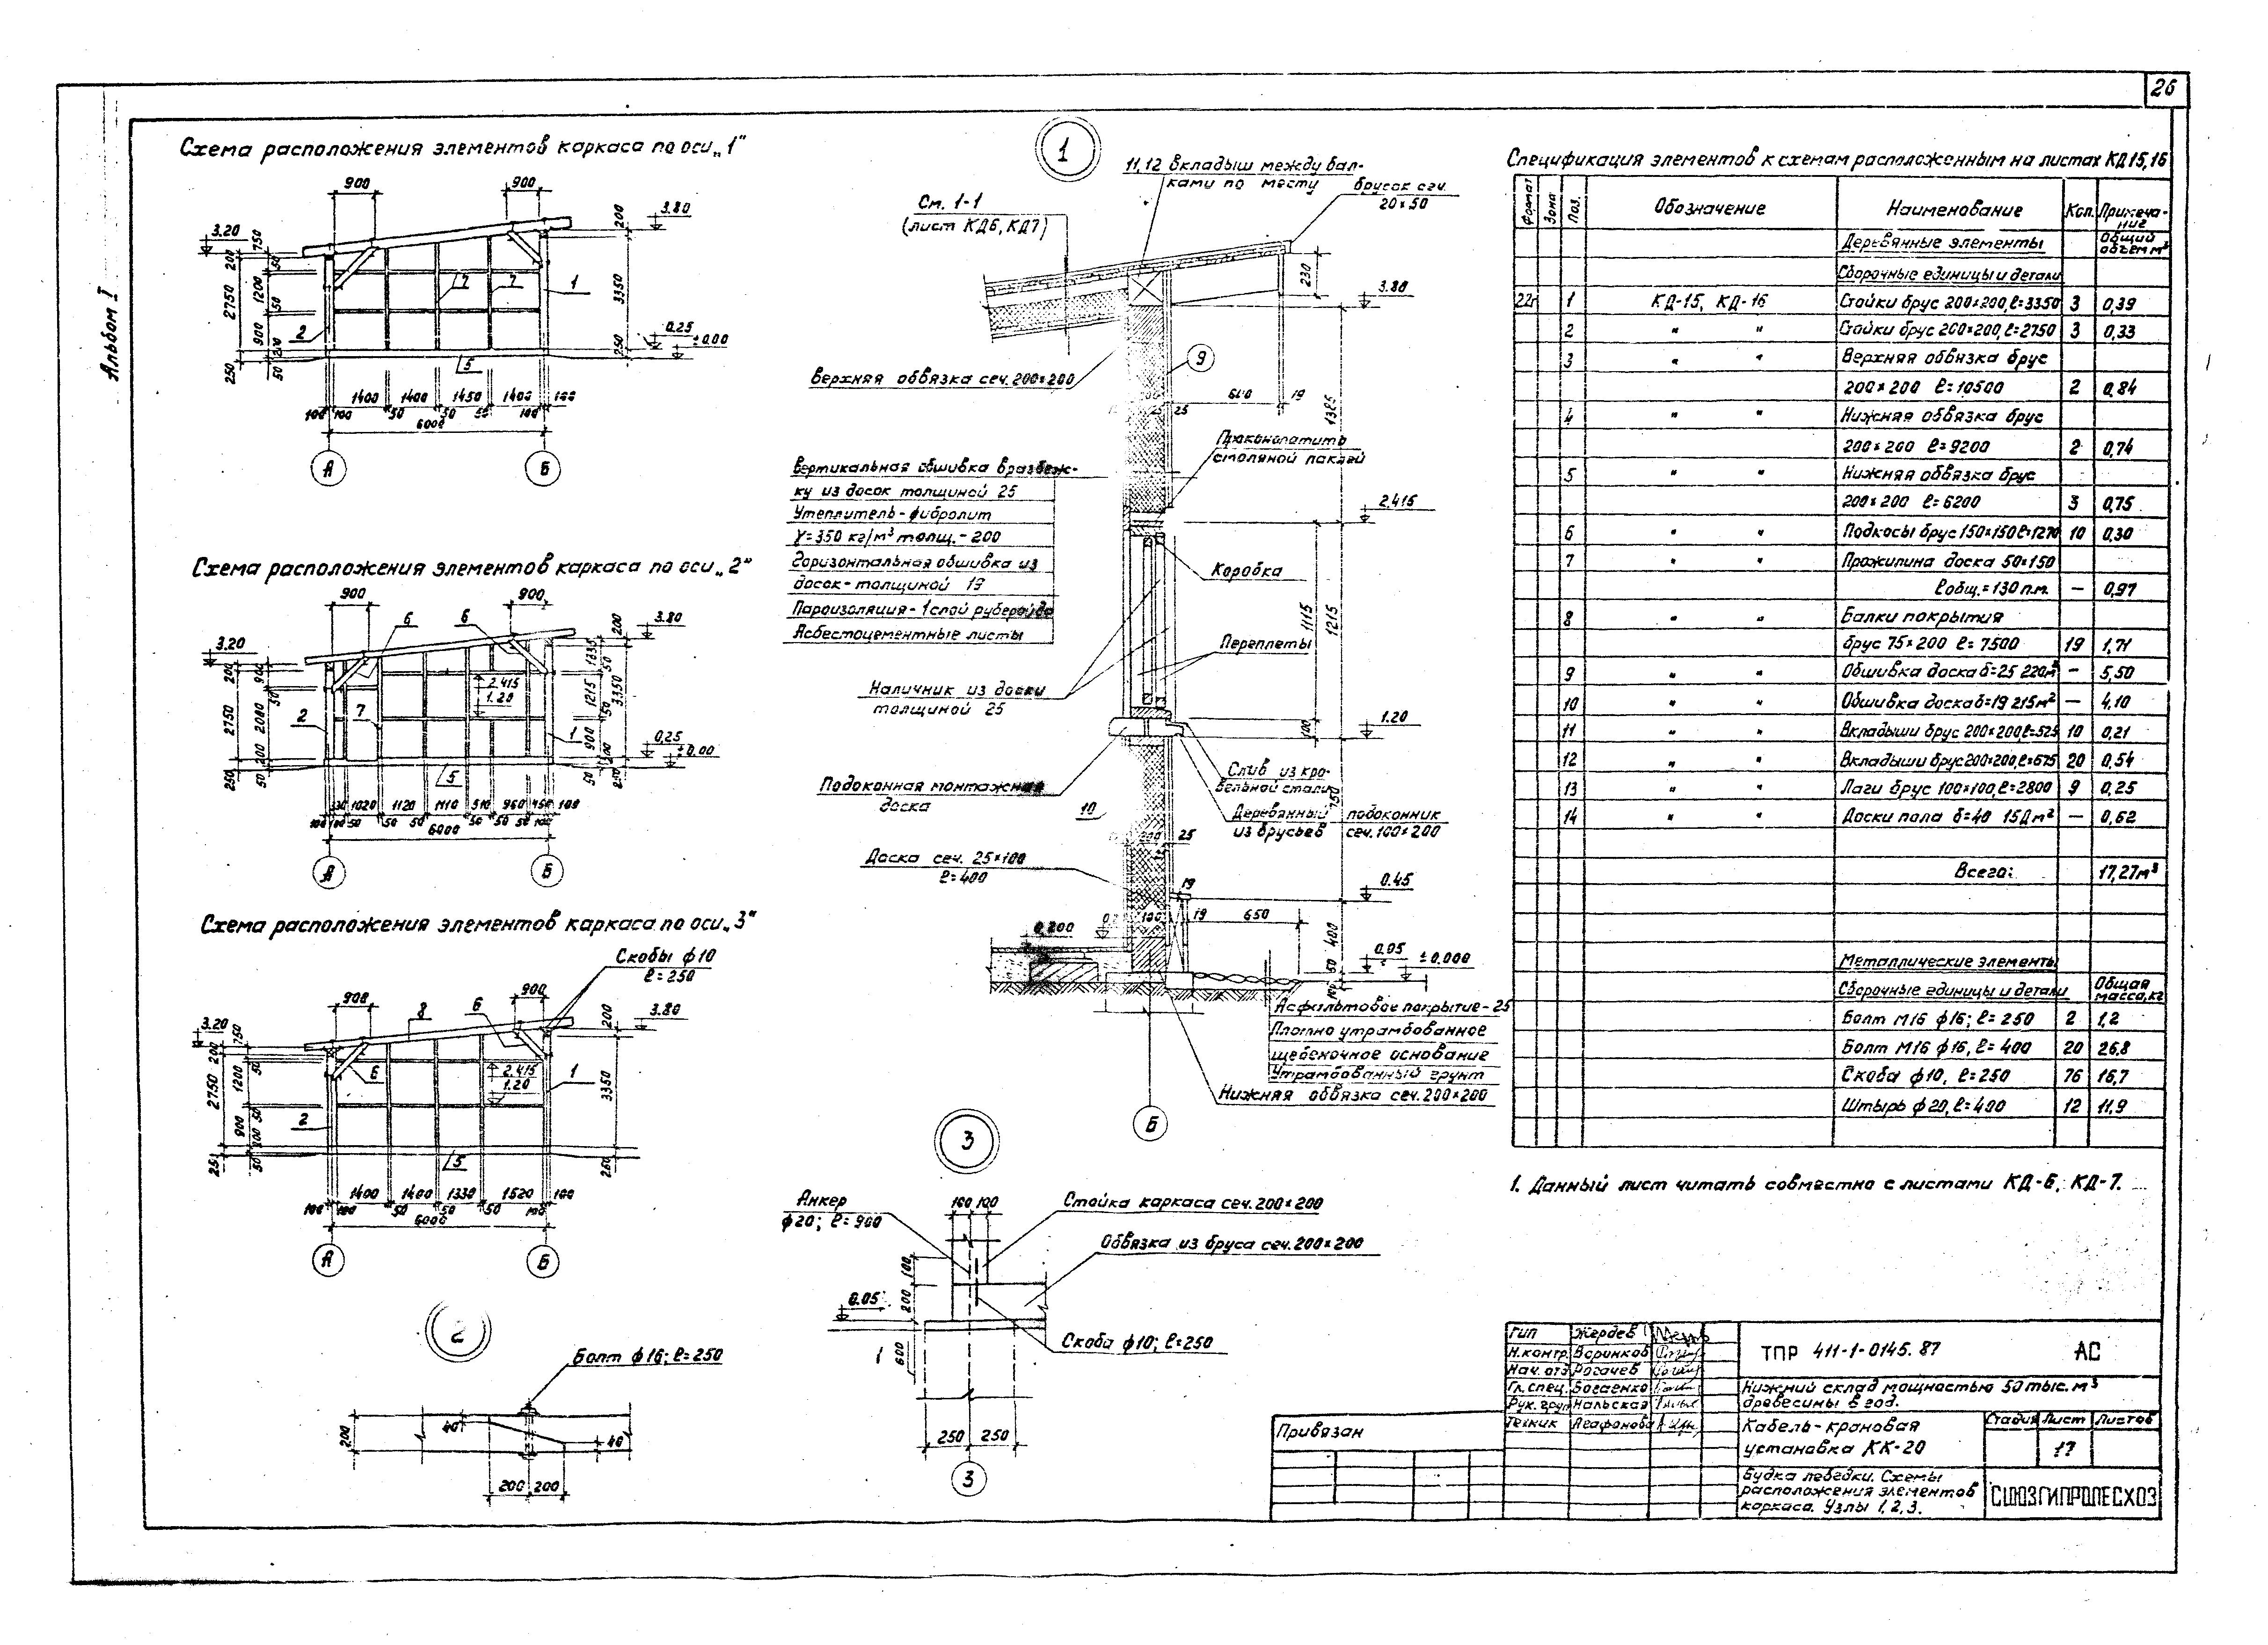 26
Альбом I
Схема расположения элементов каркаса по оси „1"
900
900
3.80
3.20
200
750
50
200
1200
2750
50
900
3350
0.25
±0.00
250
250
50
1
2
5
7
7
1400
1400
1450
1400
100
100
50
50
50
100
100
6000
А
Б
Схема расположения элементов каркаса по оси „2"
900
900
6
6
3.80
3.20
200
200
2750
2080
50
2.415
1.20
1215
3350
900
0,25
±0.00
250
50
1
2
5
7
1020
1120
1110
510
960
450
100
50
50
50
50
50
50
100
6000
Б
Схема расположения элементов каркаса по оси „3"
Скобы ф10
ℓ=250
900
900
8
6
6
3.80
3.20
750
200
200
2750
1200
50
2.415
1.20
3350
900
50
50
1
2
5
1400
1400
1330
1520
100
50
50
50
6000
А
Б
2
Болт ф16; ℓ=250
200
40
40
200
200
1
11,12 Вкладыш между бал-
ками по месту
брусок сеч.
20×50
См. 1-1
(лист КД6, КД7)
230
3.80
Верхняя обвязка сеч. 200×200
9
25
19
1325
Проконопатить
столяной паклей
Вертикальная обшивка вразбеж-
ку из досок толщиной 25
Утеплитель - фибролит
γ=350 кг/м³ толщ. - 200
Горизонтальная обшивка из
досок - толщиной 19
Пароизоляция - 1 слой рубероида
Асбестоцементные листы
2,415
Коробка
1115
1215
Переплеты
Наличник из доски
толщиной 25
1.20
100
Подоконная монтажная
доска
Слив из кро-
вельной стали
750
10
Деревянный подоконник
из брусьев сеч. 100×200
25
Доска сеч. 25×100
ℓ=400
0.45
19
19
650
400
0.05
±0.000
50
Асфальтовое покрытие - 25
Плотно утрамбованное
щебеночное основание
Утрамбованный грунт
Нижняя обвязка сеч. 200×200
Б
3
Анкер
ф20; ℓ=900
100
100
Стойка каркаса сеч. 200×200
Обвязка из бруса сеч. 200×200
100
200
0.05
600
Скоба ф10; ℓ=250
250
250
3
Спецификация элементов к схемам расположенным на листах КД15,16
Формат
Зона
Поз.
Обозначение
Наименование
Кол.
Примеча-
ние
Деревянные элементы
Общий
объем м³
Сборочные единицы и детали
1 КД-15, КД-16 Стойки брус 200×200, ℓ=3350 3 0,39
2 " " Стойки брус 200×200, ℓ=2750 3 0,33
3 " " Верхняя обвязка брус
200×200 ℓ=10500 2 0,84
4 " " Нижняя обвязка брус
200×200 ℓ=9200 2 0,74
5 " " Нижняя обвязка брус
200×200 ℓ=6200 3 0,75
6 " " Подкосы брус 150×150 ℓ=1270 10 0,30
7 " " Прожилина доска 50×150
ℓобщ.=130 п.м. — 0,97
8 " " Балки покрытия
брус 75×200 ℓ=7500 19 1,71
9 " " Обшивка доска δ=25 220м² — 5,50
10 " " Обшивка доска δ=19 215м² — 4,10
11 " " Вкладыши брус 200×200, ℓ=525 10 0,21
12 " " Вкладыши брус 200×200, ℓ=675 20 0,54
13 " " Лаги брус 100×100, ℓ=2800 9 0,25
14 " " Доски пола δ=40 — 0,62
Всего: 17,27м³
Металлические элементы
Сборочные единицы и детали
Общая
масса, кг
Болт М16 ф16; ℓ=250 2 1,2
Болт М16 ф16, ℓ=400 20 26,8
Скоба ф10, ℓ=250 76 16,7
Штырь ф20, ℓ=400 12 11,9
1. Данный лист читать совместно с листами КД-6, КД-7.
ГИП Жердев
Н.контр. Воринков
Нач. отд Рогачев
Гл. спец. Богаенко
Рук. груп Нальская
Техник Агафонова
ТПР 411-1-0145.87 АС
Нижний склад мощностью 50 тыс. м³
древесины в год.
Кабель-крановая
установка КК-20
Стадия Лист Листов
17
Будка лебедки. Схемы
расположения элементов
каркаса. Узлы 1, 2, 3.
СОЮЗГИПРОЛЕСХОЗ
Привязан